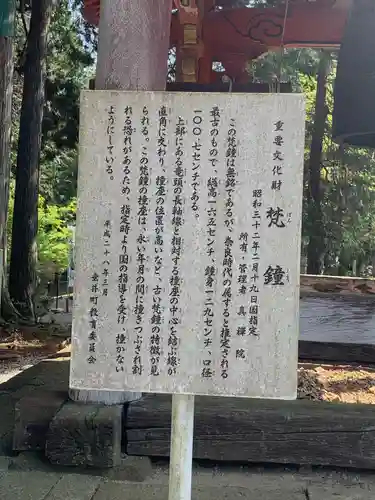 重要文化財 梵鐘
ぼん しょう
昭和三十二年二月十九日国指定
所有・管理者 真禅院
この梵鐘は無銘であるが、奈良時代の属すると推定される
最古のもので 総高一六五センチ、鐘身一二九センチ 口径
一〇〇.七センチである。
上部にある竜頭の長軸線と相対する撞座の中心を結ぶ線が
直角に交わり、撞座の位置が高いなど、古い梵鐘の特徴が見
られる。この梵鐘の撞座は、永い年月の間に撞きつぶされ割
れる恐れがあるため、指定時より国の指導を受け、撞かない
ようにしている。
平成二十八年三月
垂井町教育委員会